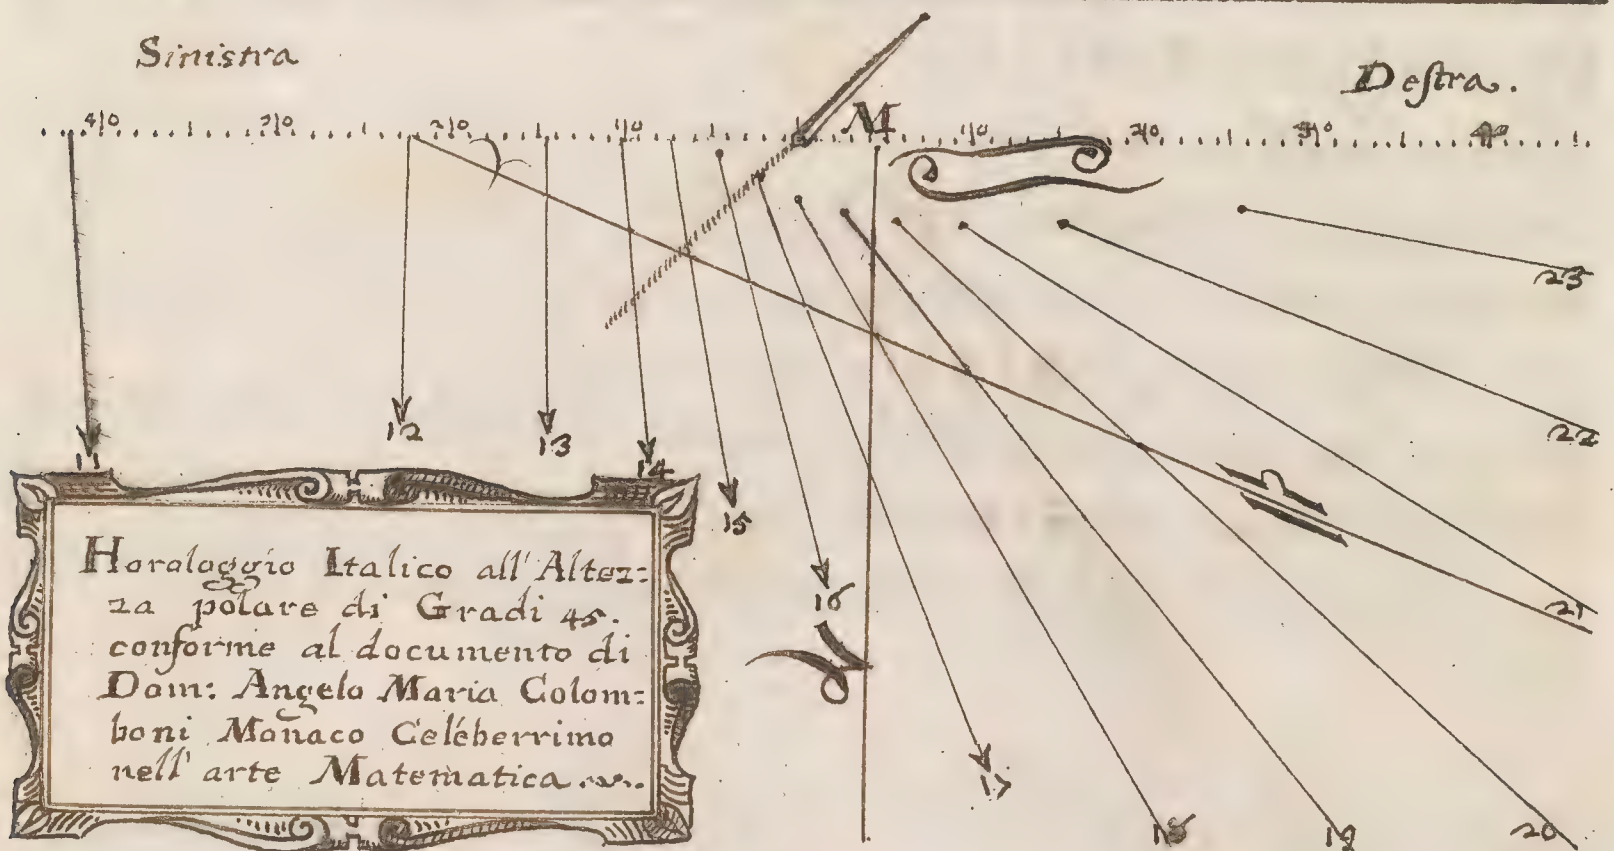 Sinistra
Destra.
40 30 20 10 M 10 20 30 40
23
22
11 12 13 14
15
16
21
17
18 19 20
Horologgio Italico all' Altez:
za polare di Gradi 45.
conforme al documento di
Dom: Angelo Maria Colom:
boni Monaco Celeberrimo
nell' arte Matematica